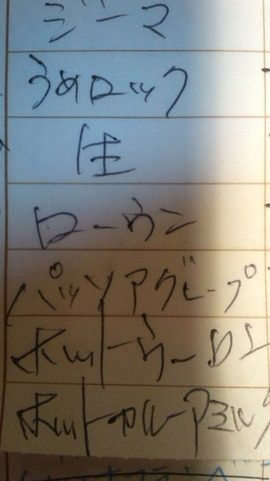 ジーマ
うめロック
生
ローウン
パッソアグレープ
ホットウーロン
ホットカルーアミルク